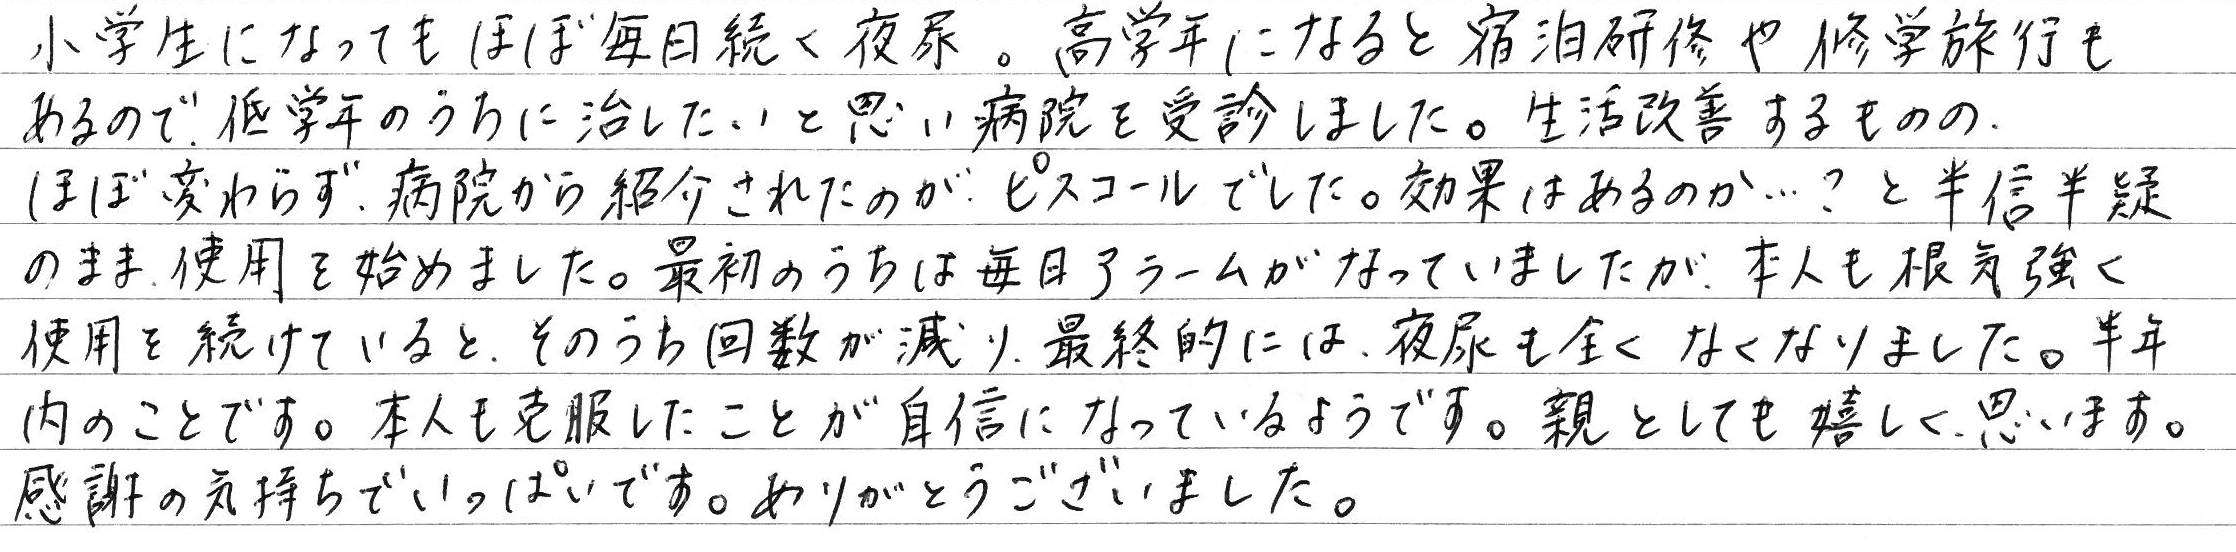 小学生になってもほぼ毎日続く夜尿。高学年になると宿泊研修や修学旅行も
あるので、低学年のうちに治したいと思い病院を受診しました。生活改善するものの、
ほぼ変わらず、病院から紹介されたのが、ピスコールでした。効果はあるのか…？と半信半疑
のまま、使用を始めました。最初のうちは毎日アラームがなっていましたが、本人も根気強く
使用を続けていると、そのうち回数が減り、最終的には、夜尿も全くなくなりました。半年
内のことです。本人も克服したことが自信になっているようです。親としても嬉しく、思います。
感謝の気持ちでいっぱいです。ありがとうございました。